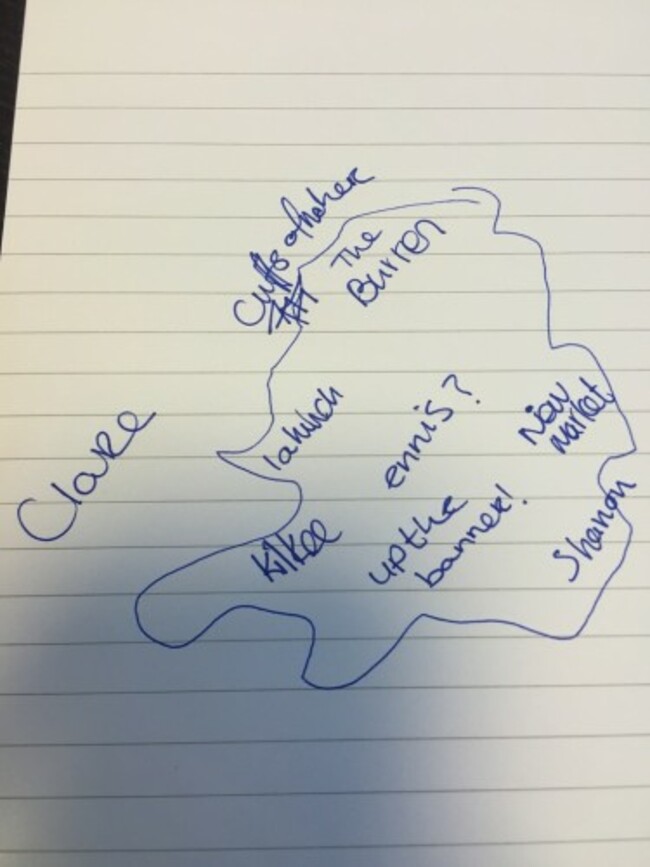 Cliffs of Moher
The
Burren
Clare
lahinch
ennis?
New
Market
Kilkee
up the
banner!
Shanon